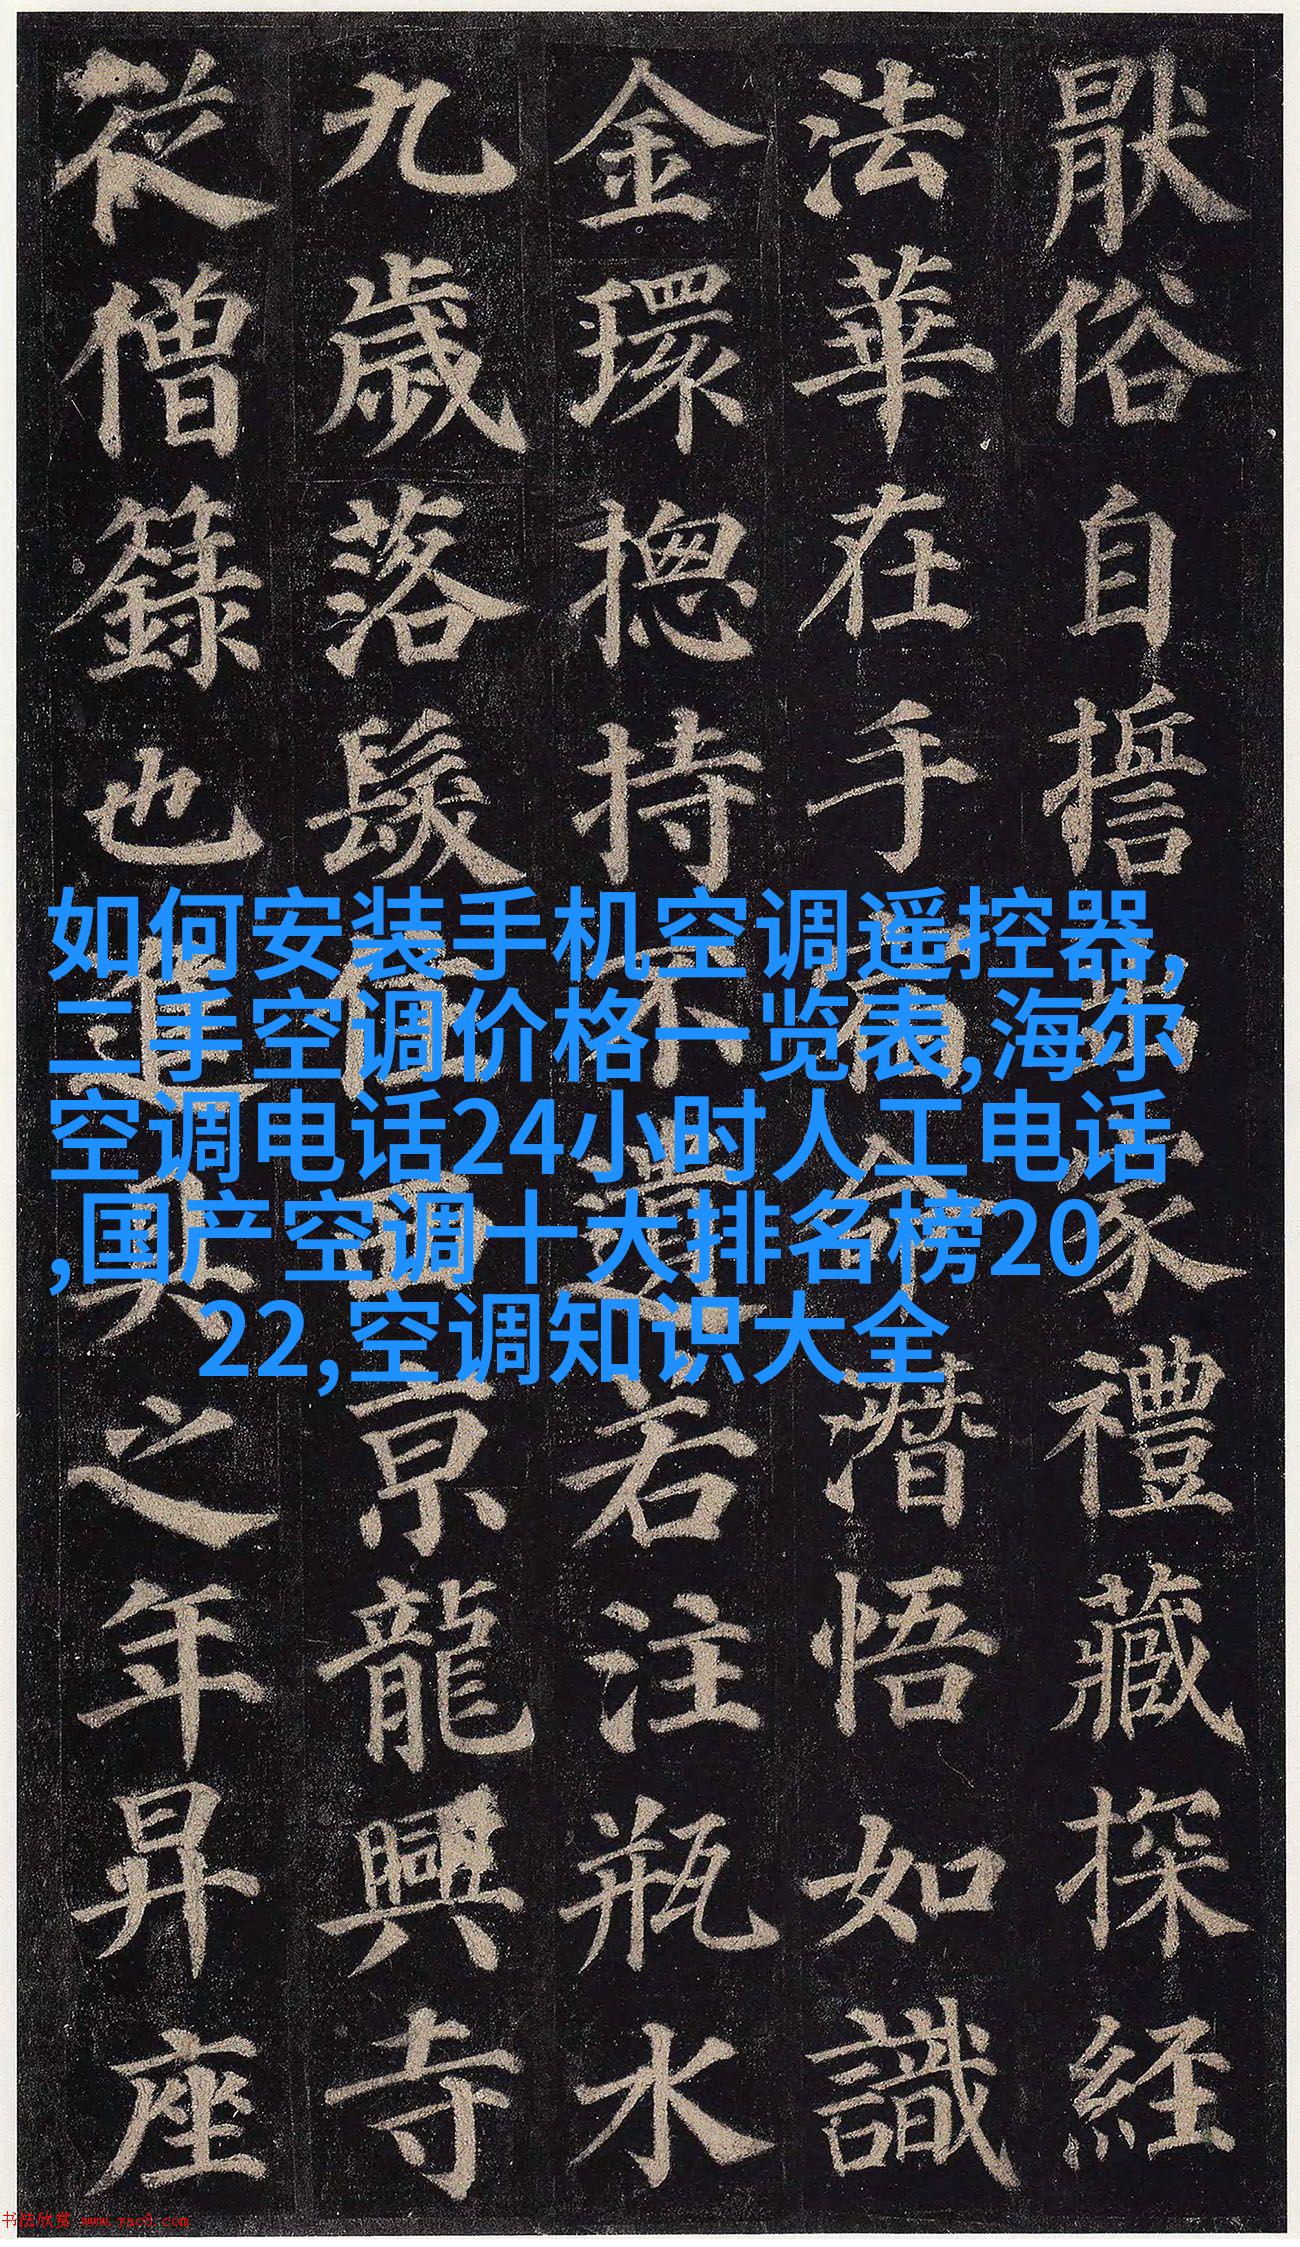 猒俗自誓出家禮藏探經
法華在手潛悟如識
金環揔持不遺若注瓶水
九歲落髮住西京龍興寺
從僧籙也進具之年昇座
如何安装手机空调遥控器,
二手空调价格一览表,海尔
空调电话24小时人工电话
,国产空调十大排名榜20
22,空调知识大全
书法欣赏 www.yac8.com